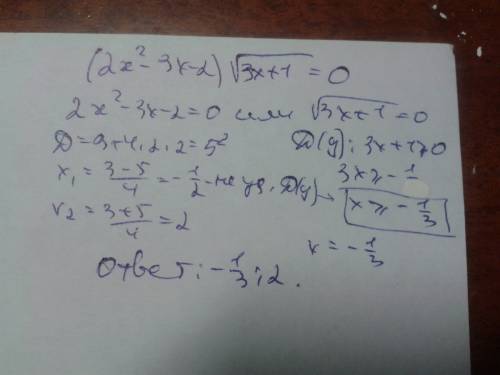 (2x² - 3x - 2) √3x+1 = 0
2x² - 3x - 2 = 0 или √3x+1 = 0
D = 9+4·2·2 = 5² D(y): 3x+1≥0
x₁ = (3-5)/4 = -1/2 - не уд. D(y) 3x ≥ -1
x₂ = (3+5)/4 = 2 x ≥ -1/3
x = -1/3
Ответ: -1/3; 2.